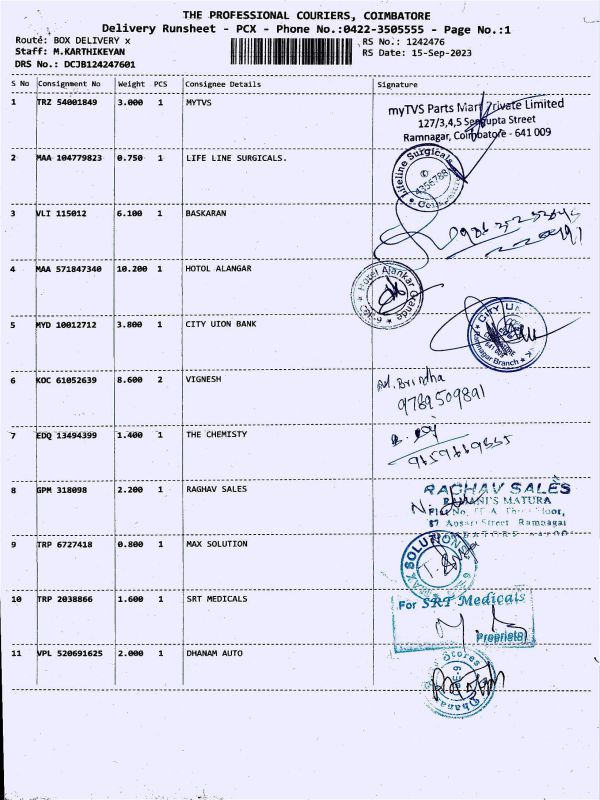 THE PROFESSIONAL COURIERS, COIMBATORE
Delivery Runsheet - PCX - Phone No.:0422-3505555 - Page No.:1
Route: BOX DELIVERY x
RS No.: 1242476
Staff: M.KARTHIKEYAN
RS Date: 15-Sep-2023
DRS No.: DCJB124247601
S No Consignment No Weight PCS Consignee Details Signature
1 TRZ 54001849 3.000 1 MYTVS
myTVS Parts Mart Private Limited
127/3,4,5 Sengupta Street
Ramnagar, Coimbatore - 641 009
2 MAA 104779823 0.750 1 LIFE LINE SURGICALS.
Lifeline Surgicals
4356788
3 VLI 115012 6.100 1 BASKARAN
4 MAA 571847340 10.200 1 HOTOL ALANGAR
Hotel Alankar Grande
5 MYD 10012712 3.800 1 CITY UION BANK
CITY
Ramnagar Branch
6 KOC 61052639 8.600 2 VIGNESH
Brindha
9789509891
7 EDQ 13494399 1.400 1 THE CHEMISTY
8 GPM 318098 2.200 1 RAGHAV SALES
RAGHAV SALES
MATURA
Floor,
87 Ansari Street Ramnagar
9 TRP 6727418 0.800 1 MAX SOLUTION
MAX SOLUTION
10 TRP 2038866 1.600 1 SRT MEDICALS
For SRT Medicals
Proprietor
11 VPL 520691625 2.000 1 DHANAM AUTO
Stores